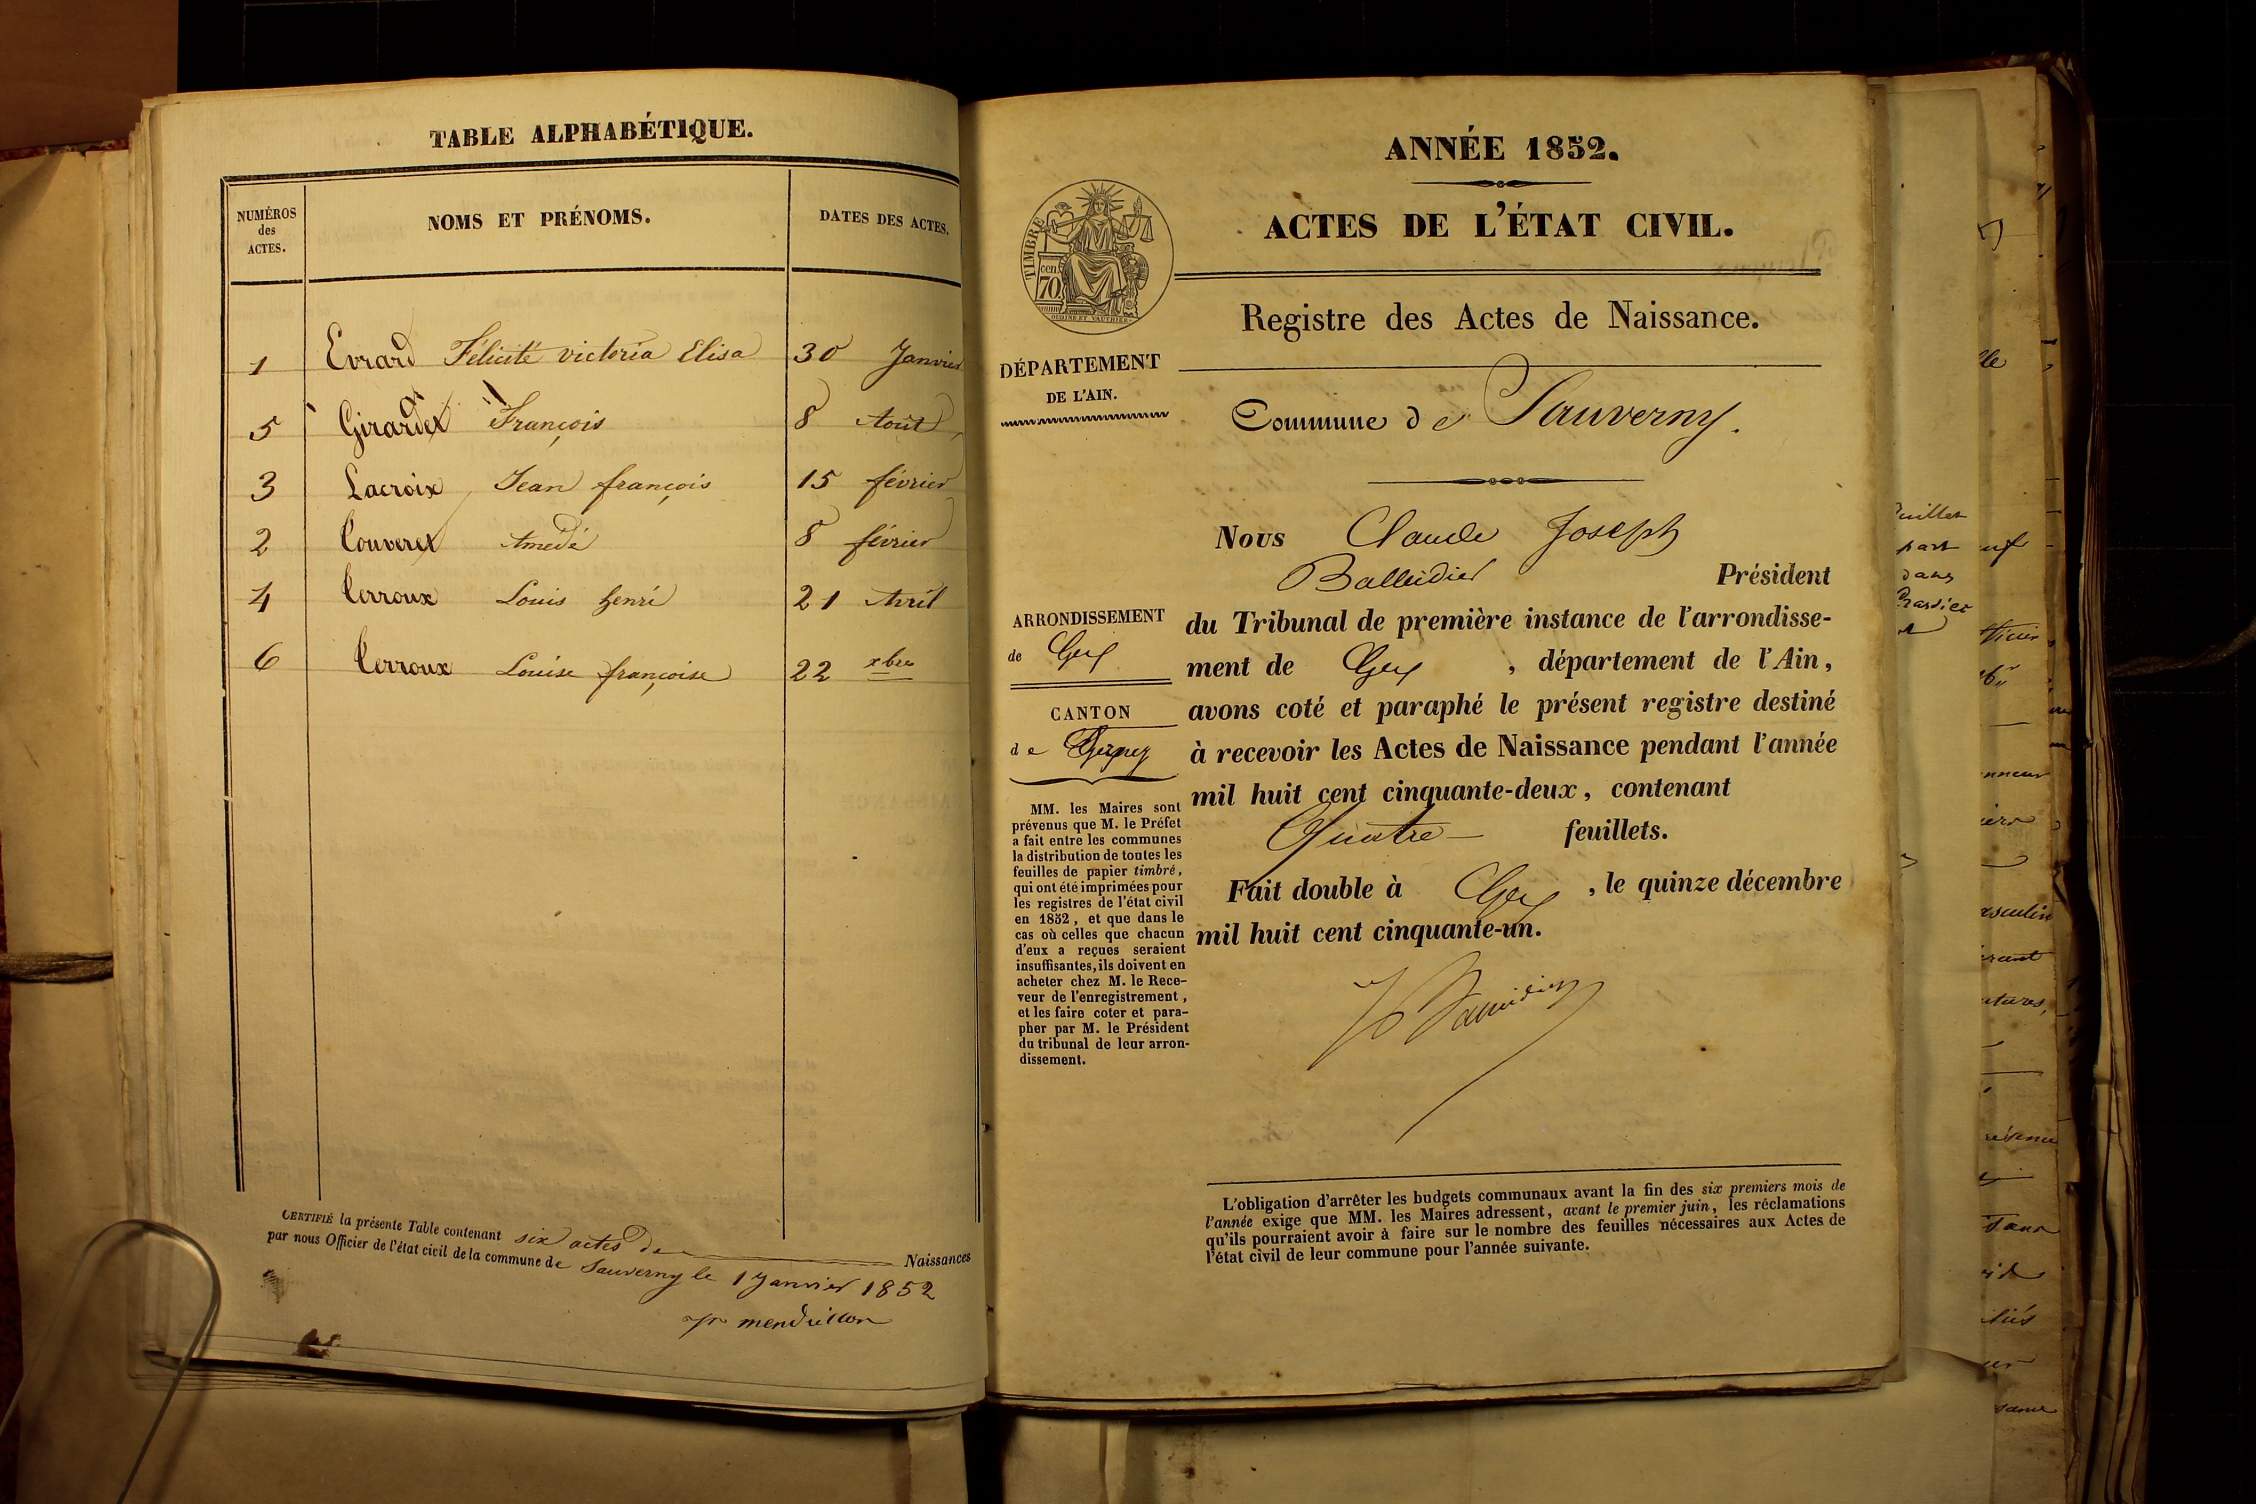 TABLE ALPHABÉTIQUE.
NUMÉROS des ACTES.
NOMS ET PRÉNOMS.
DATES DES ACTES.
1 Evrard Félicité victoria Elisa 30 Janvier
5 Girardet François 8 Août
3 Lacroix Jean françois 15 février
2 Couveret Amedé 8 février
4 Perroux Louis henri 21 Avril
6 Perroux Louise françoise 22 xbre
CERTIFIÉ la présente Table contenant six actes de Naissances
par nous Officier de l'état civil de la commune de Sauverny le 1 Janvier 1852
ANNÉE 1852.
ACTES DE L'ÉTAT CIVIL.
TIMBRE
cen.
70.
Registre des Actes de Naissance.
DÉPARTEMENT
DE L'AIN.
Commune de Sauverny.
Nous Claude Joseph
Balleidier Président
du Tribunal de première instance de l'arrondisse-
ment de Gex, département de l'Ain,
avons coté et paraphé le présent registre destiné
à recevoir les Actes de Naissance pendant l'année
mil huit cent cinquante-deux, contenant
Quatre feuillets.
Fait double à Gex, le quinze décembre
mil huit cent cinquante-un.
ARRONDISSEMENT
de Gex
CANTON
de Ferney
MM. les Maires sont
prévenus que M. le Préfet
a fait entre les communes
la distribution de toutes les
feuilles de papier timbré,
qui ont été imprimées pour
les registres de l'état civil
en 1852, et que dans le
cas où celles que chacun
d'eux a reçues seraient
insuffisantes, ils doivent en
acheter chez M. le Rece-
veur de l'enregistrement,
et les faire coter et para-
pher par M. le Président
du tribunal de leur arron-
dissement.
L'obligation d'arrêter les budgets communaux avant la fin des six premiers mois de
l'année exige que MM. les Maires adressent, avant le premier juin, les réclamations
qu'ils pourraient avoir à faire sur le nombre des feuilles nécessaires aux Actes de
l'état civil de leur commune pour l'année suivante.